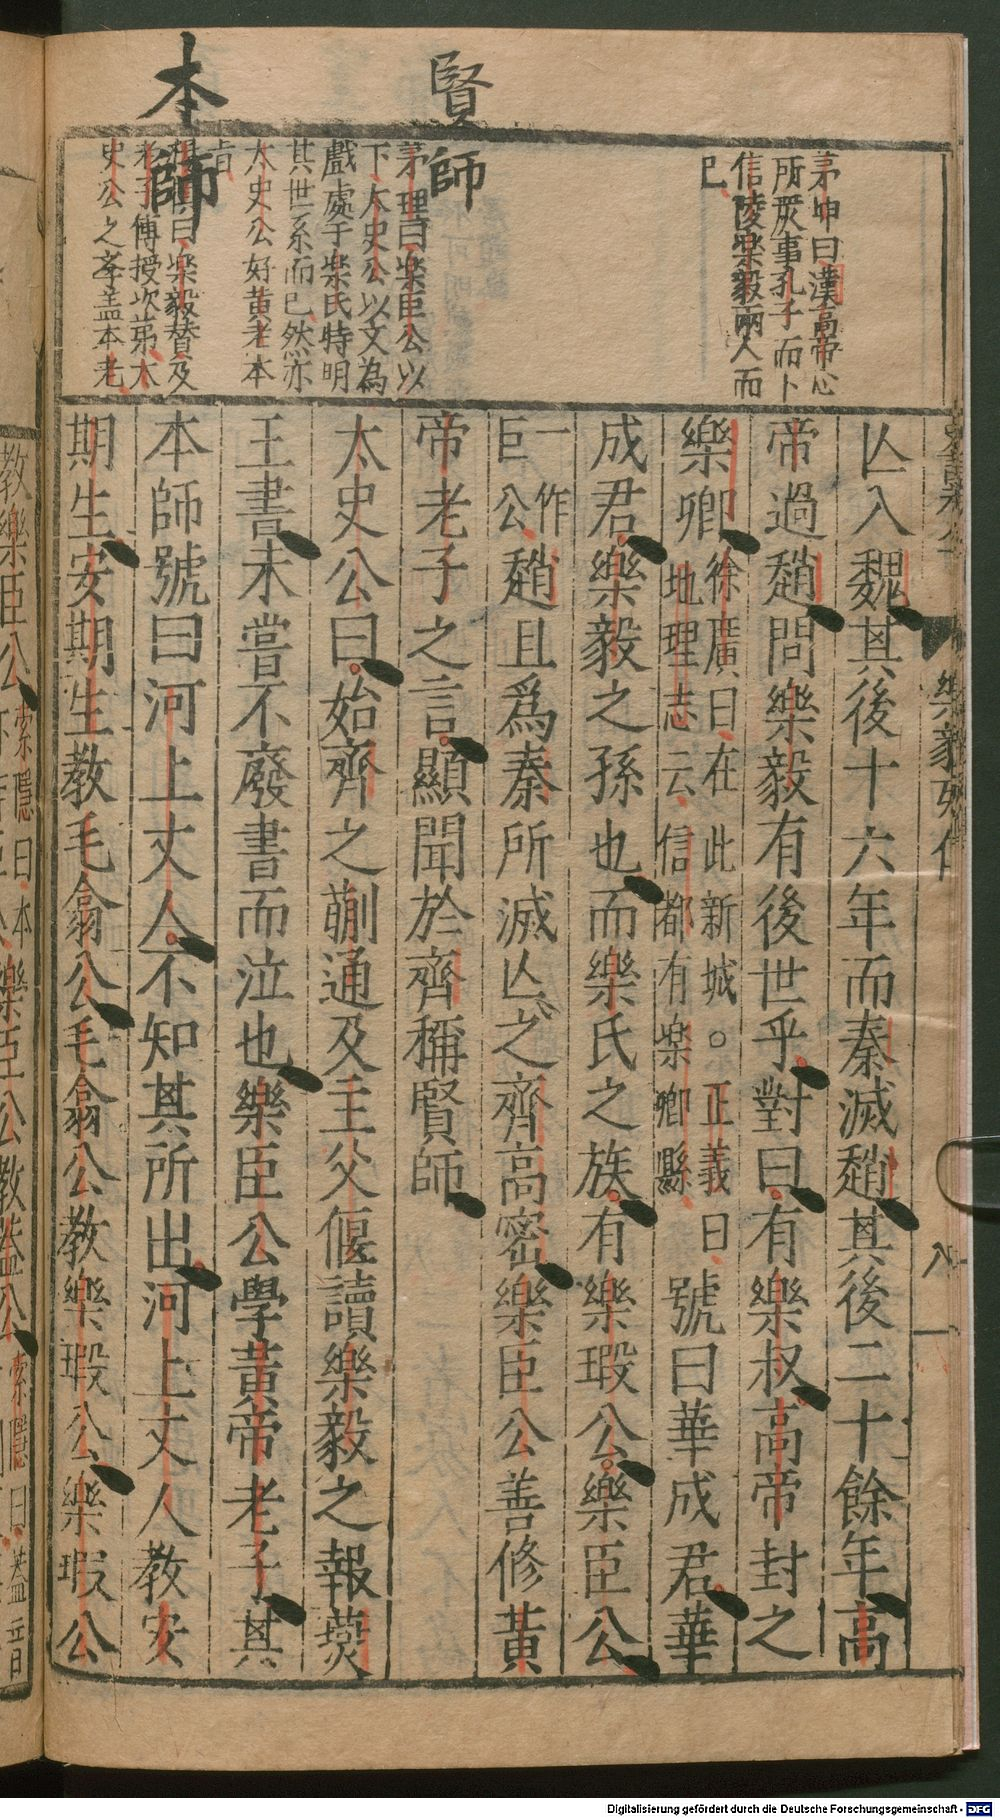 賢師
本師
茅坤曰漢高帝心
所㞐事孔子而下
信陵樂毅兩人而
已
茅理曰樂臣公以
下太史公以文為
戲處于樂氏特明
其世系而已然亦
太史公好黃老本
旨
曰樂毅贊及
老子傳授次第太
史公之孝盖本老
樂毅列傳
八
亾入魏其後十六年而秦滅趙其後二十餘年高
帝過趙問樂毅有後世乎對曰有樂叔高帝封之
樂卿徐廣曰在此新城。正義曰
地理志云信都有樂卿縣號曰華成君華
成君樂毅之孫也而樂氏之族有樂瑕公樂臣公
一作
巨公趙且爲秦所滅亾之齊高密樂臣公善修黃
帝老子之言顯聞於齊稱賢師
太史公曰始齊之蒯通及主父偃讀樂毅之報燕
王書未嘗不廢書而泣也樂臣公學黃帝老子其
本師號曰河上丈人不知其所出河上丈人教安
期生安期生教毛翕公毛翕公教樂瑕公樂瑕公
教樂臣公索隱曰本
樂臣公教蓋公索隱曰蓋音
Digitalisierung gefördert durch die Deutsche Forschungsgemeinschaft - DFG